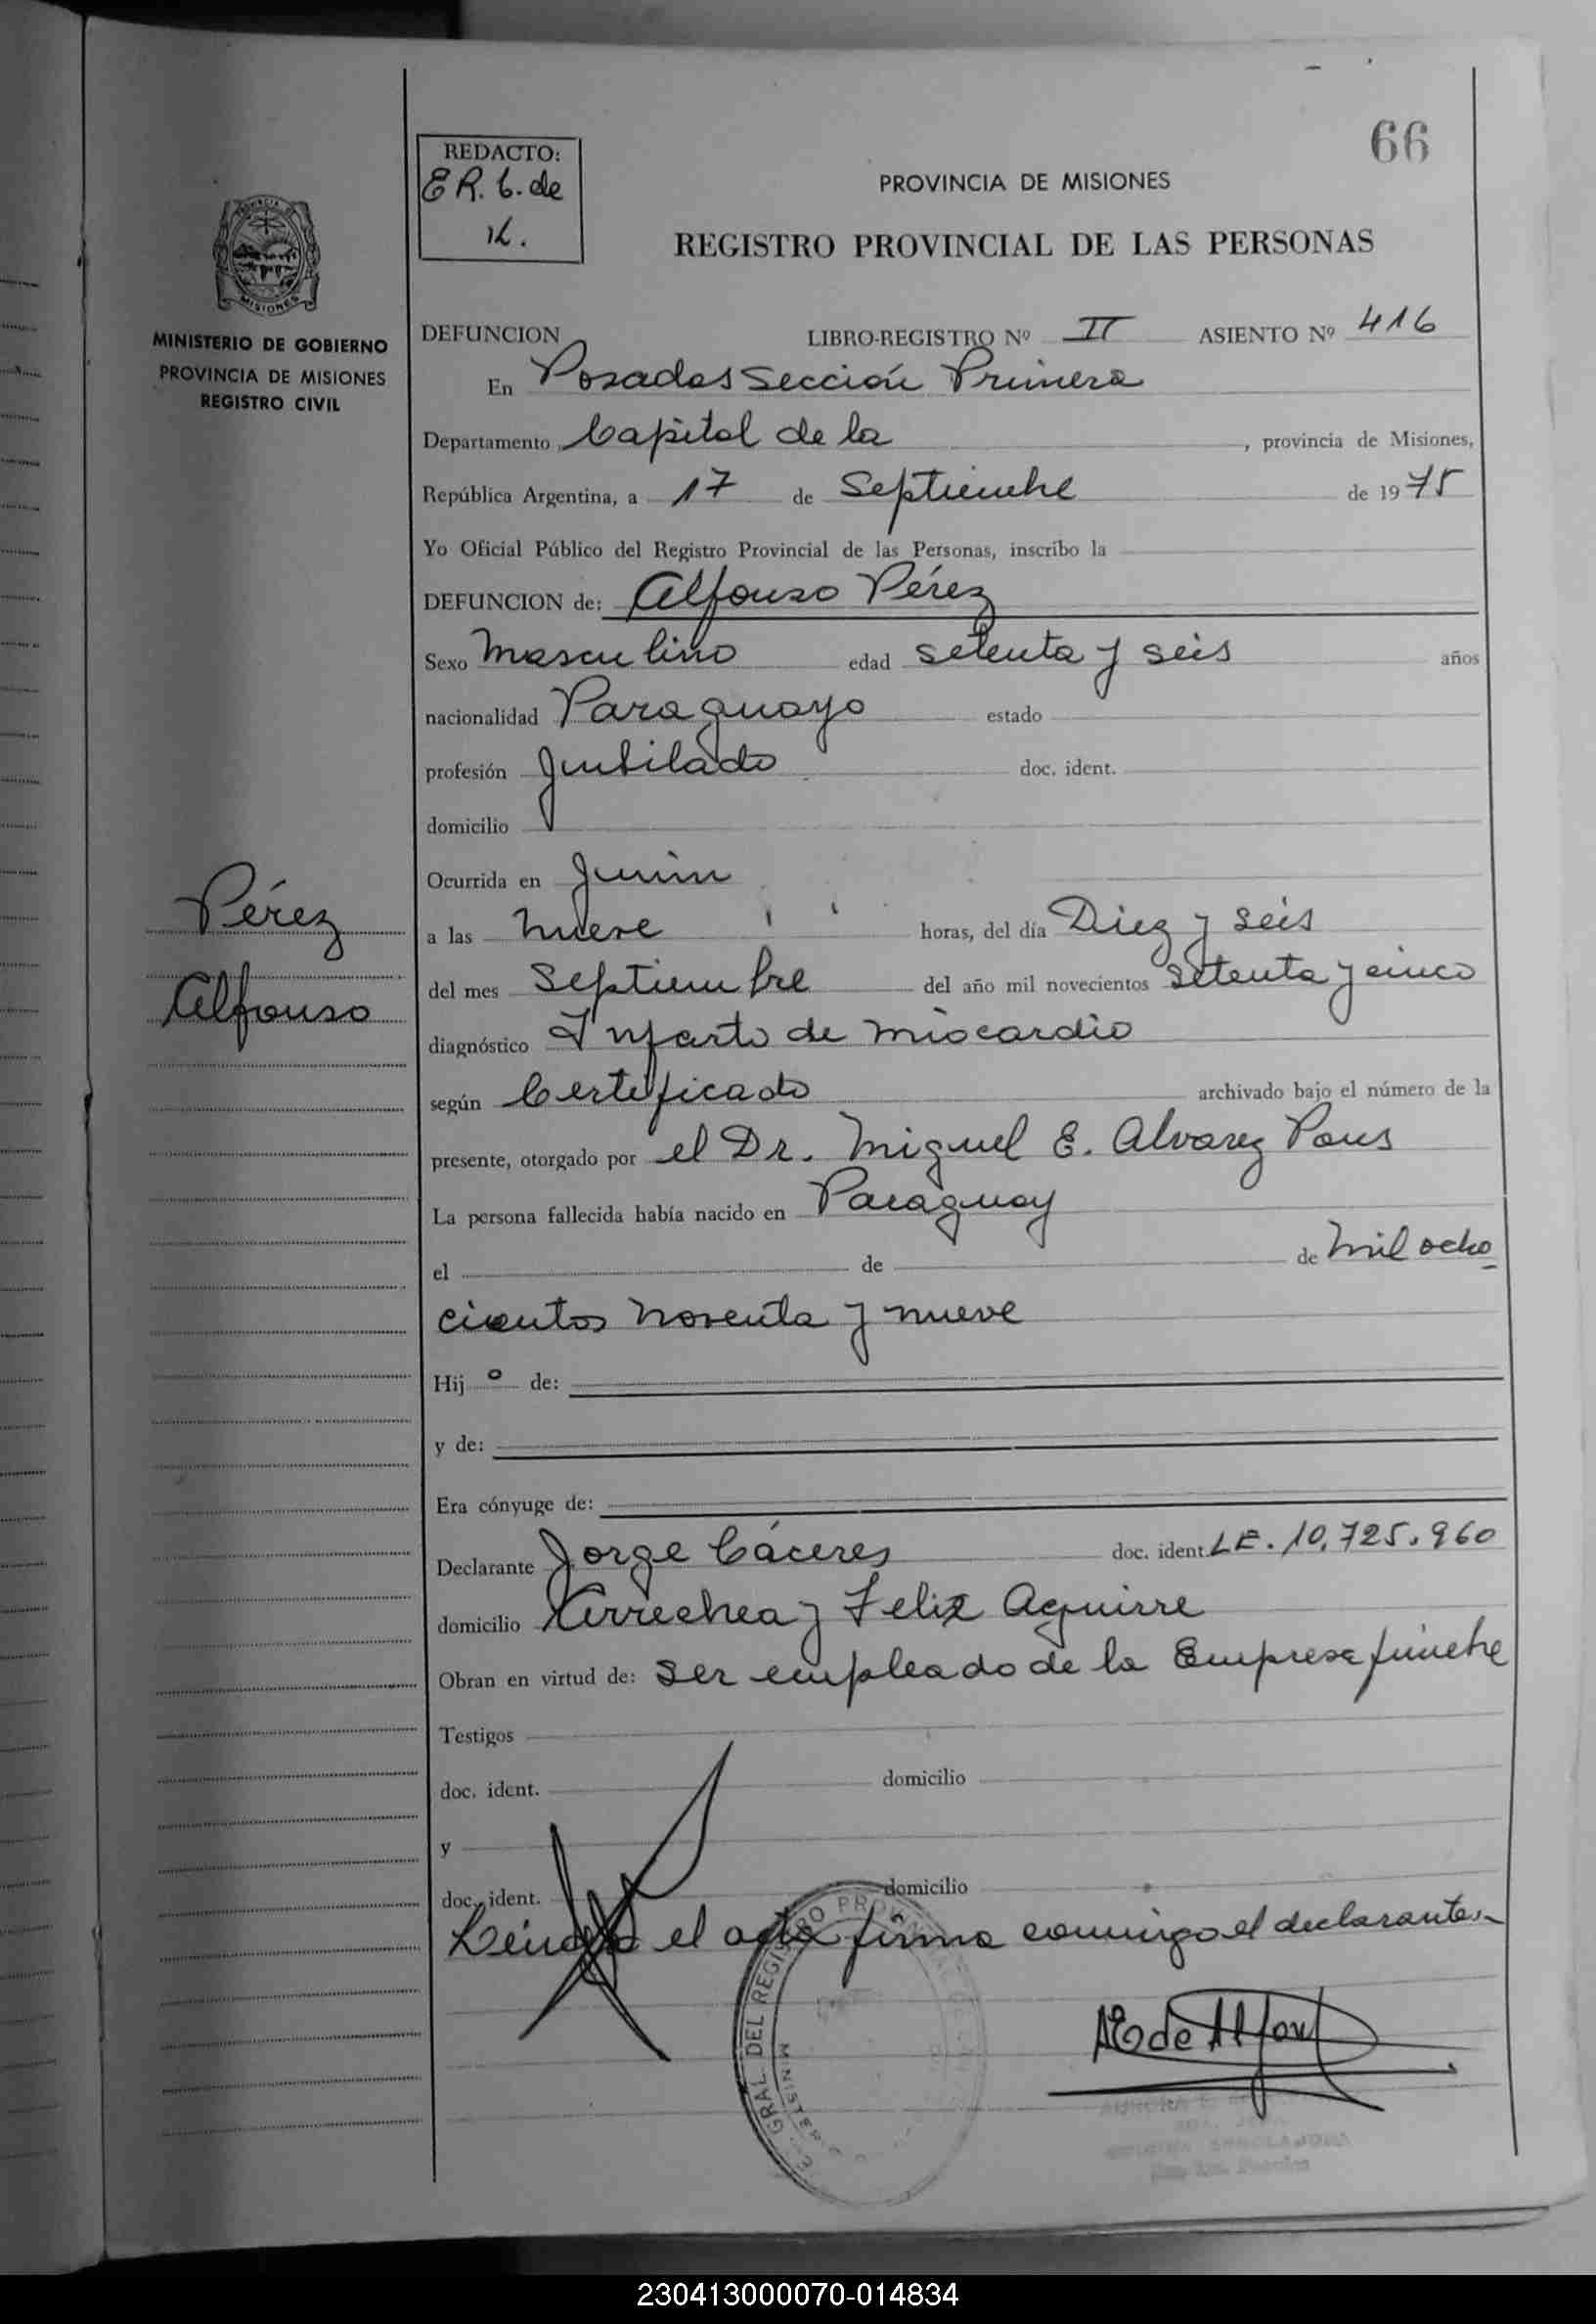 66
REDACTO:
E R. C. de
K.
PROVINCIA DE MISIONES
REGISTRO PROVINCIAL DE LAS PERSONAS
PROVINCIA DE
MISIONES
MINISTERIO DE GOBIERNO
PROVINCIA DE MISIONES
REGISTRO CIVIL
DEFUNCION LIBRO-REGISTRO Nº II ASIENTO Nº 416
En Posadas Sección Primera
Departamento Capital de la, provincia de Misiones,
República Argentina, a 17 de Septiembre de 1975
Yo Oficial Público del Registro Provincial de las Personas, inscribo la
DEFUNCION de: Alfonso Pérez
Sexo Masculino edad setenta y seis años
nacionalidad Paraguayo estado
profesión Jubilado doc. ident.
domicilio
Ocurrida en Junin
Pérez
Alfonso
a las Nueve horas, del día Diez y seis
del mes Septiembre del año mil novecientos setenta y cinco
diagnóstico Infarto de miocardio
según Certificado archivado bajo el número de la
presente, otorgado por el Dr. Miguel E. Alvarez Pous
La persona fallecida había nacido en Paraguay
el de de Mil ocho
cientos noventa y nueve
Hijo de:
y de:
Era cónyuge de:
Declarante Jorge Cáceres doc. ident. LE. 10.725.960
domicilio Arrechea y Feliz Aguirre
Obran en virtud de: Ser empleado de la Empresa fúnebre
Testigos
doc. ident. domicilio
y
doc. ident. domicilio
Leída el acta firma conmigo el declarante.
GRAL. DEL REGISTRO
MINISTER
230413000070-014834